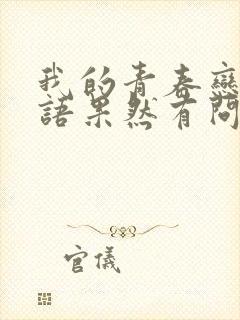 我的青春戀
語果然有問
官儀